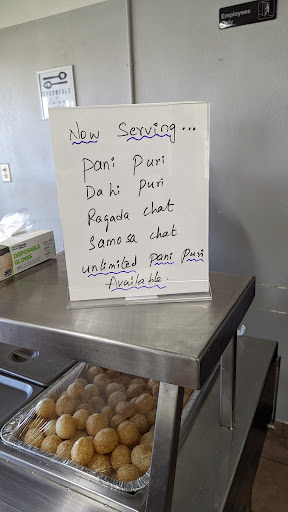 Employees
Only
SPOONFULS
Now Serving...
Pani Puri
Dahi Puri
Ragada chat
Samosa chat
unlimited Pani Puri
Available.
DISPOSABLE
GLOVES